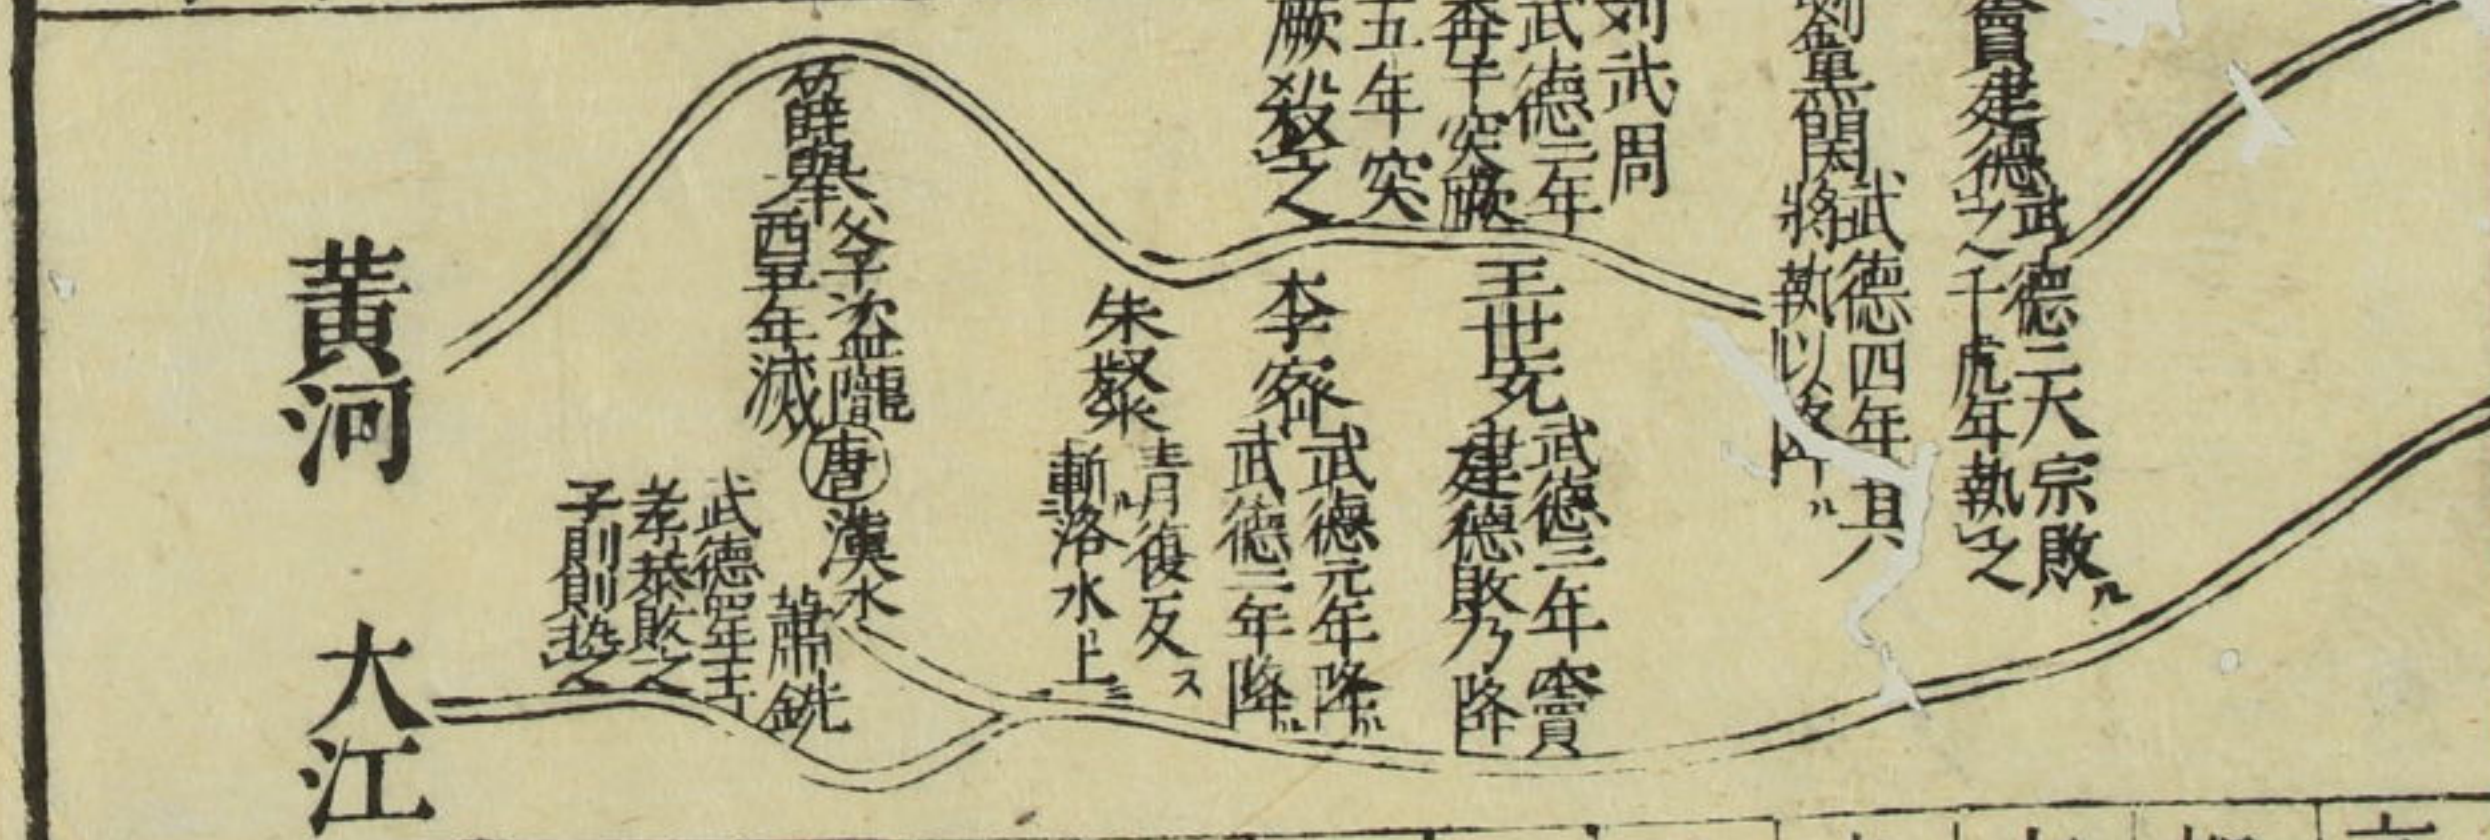 竇建德
武德三天宗敗ル
之千虎年執之
劉黒闥
武德四年其
將執以降ル
刘武周
武德三年
奔于突厥
五年突
厥殺之
王世充
武德三年竇
建德敗乃降
李密
武德元年降ル
武德二年降ル
朱粲
青復反ス
斬ル洛水上ニ
薛舉
父子盗隴
酉五年滅
唐
漢水
蕭銑
武德四年王
孝恭敗之
子則則殺之
黄河
大江